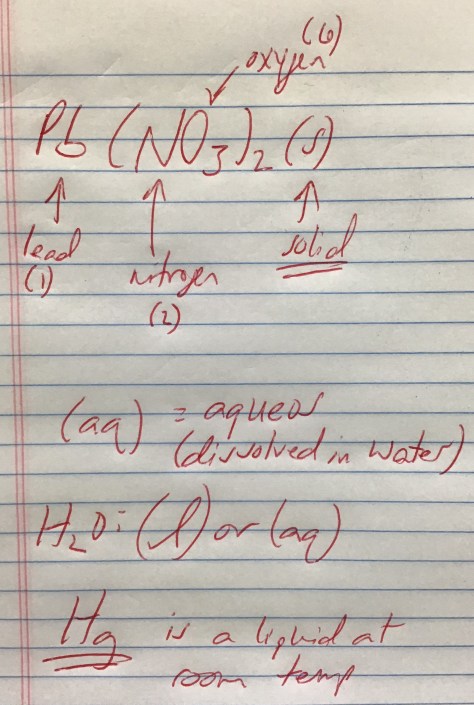 (6)
oxygen
Pb (NO₃)₂ (s)
lead nitrogen solid
(1) (2)
(aq) = aqueos
(dissolved in water)
H₂O: (l) or (aq)
Hg is a liquid at
room temp